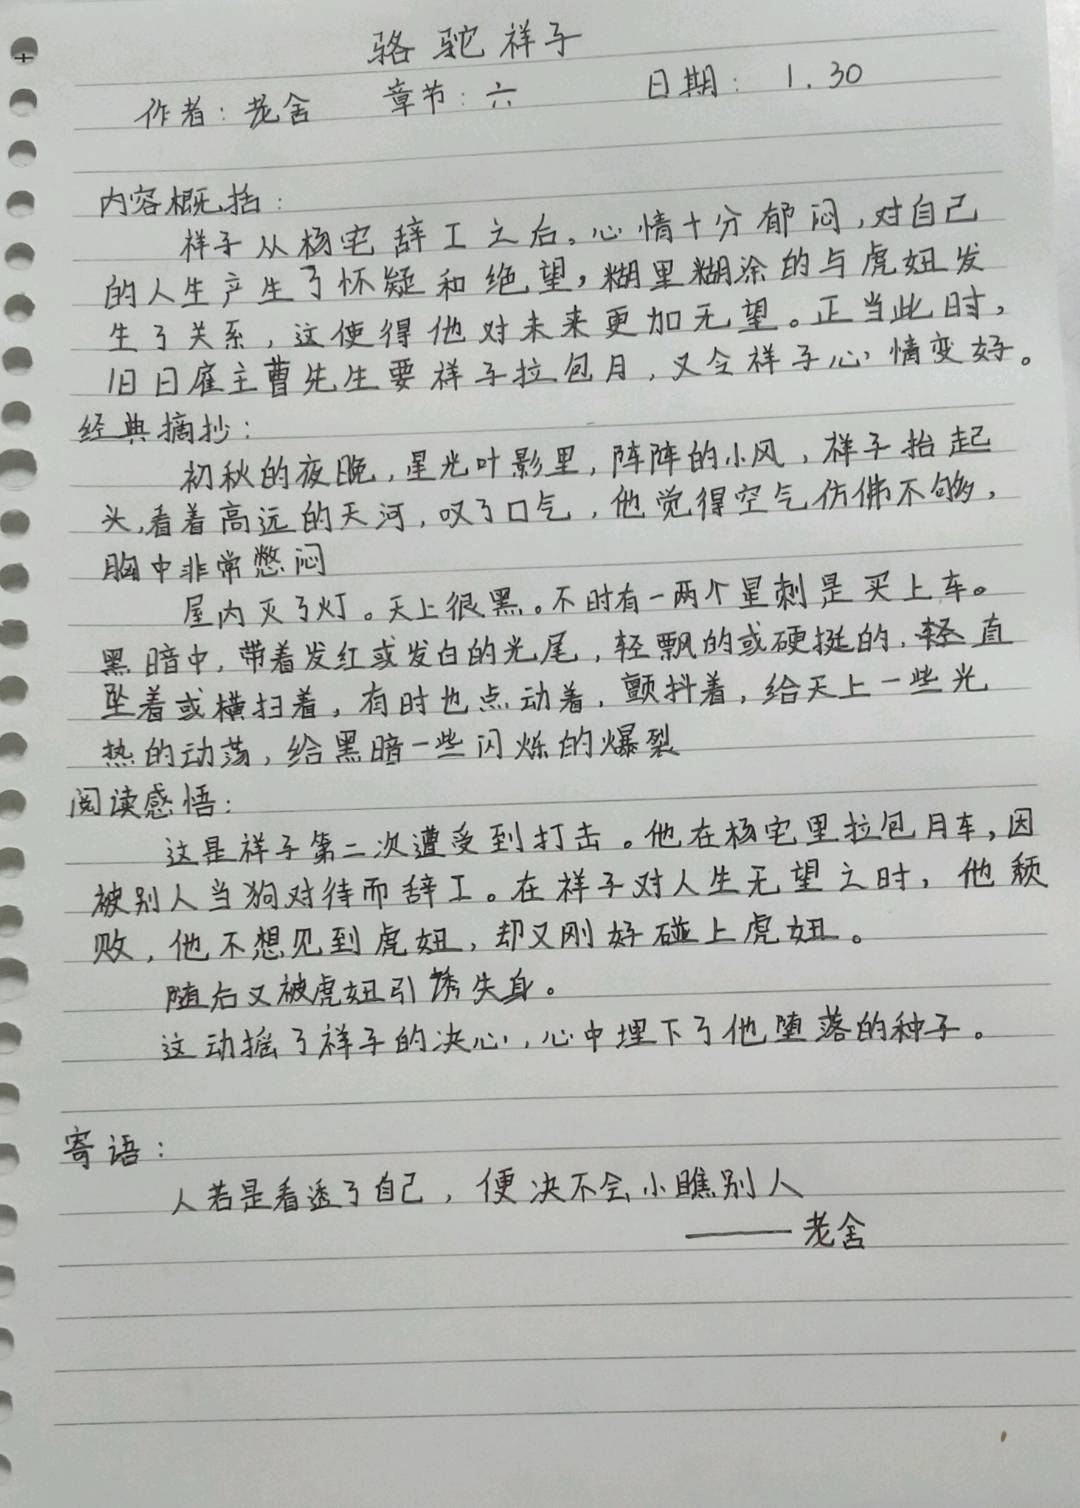 骆驼祥子
作者：老舍 章节：六 日期：1.30
内容概括：
祥子从杨宅辞工之后。心情十分郁闷，对自己
的人生产生了怀疑和绝望，糊里糊涂的与虎妞发
生了关系，这使得他对未来更加无望。正当此时，
旧日雇主曹先生要祥子拉包月，又令祥子心情变好。
经典摘抄：
初秋的夜晚，星光叶影里，阵阵的小风，祥子抬起
头，看着高远的天河，叹了口气，他觉得空气仿佛不够，
胸中非常憋闷
屋内灭了灯。天上很黑。不时有一两个星刺是买上车。
黑暗中，带着发红或发白的光尾，轻飘的或硬挺的，轻直
坠着或横扫着，有时也点动着，颤抖着，给天上一些光
热的动荡，给黑暗一些闪烁的爆裂
阅读感悟：
这是祥子第二次遭受到打击。他在杨宅里拉包月车，因
被别人当狗对待而辞工。在祥子对人生无望之时，他颓
败，他不想见到虎妞，却又刚好碰上虎妞。
随后又被虎妞引诱失身。
这动摇了祥子的决心，心中埋下了他堕落的种子。
寄语：
人若是看透了自己，便决不会小瞧别人
——老舍